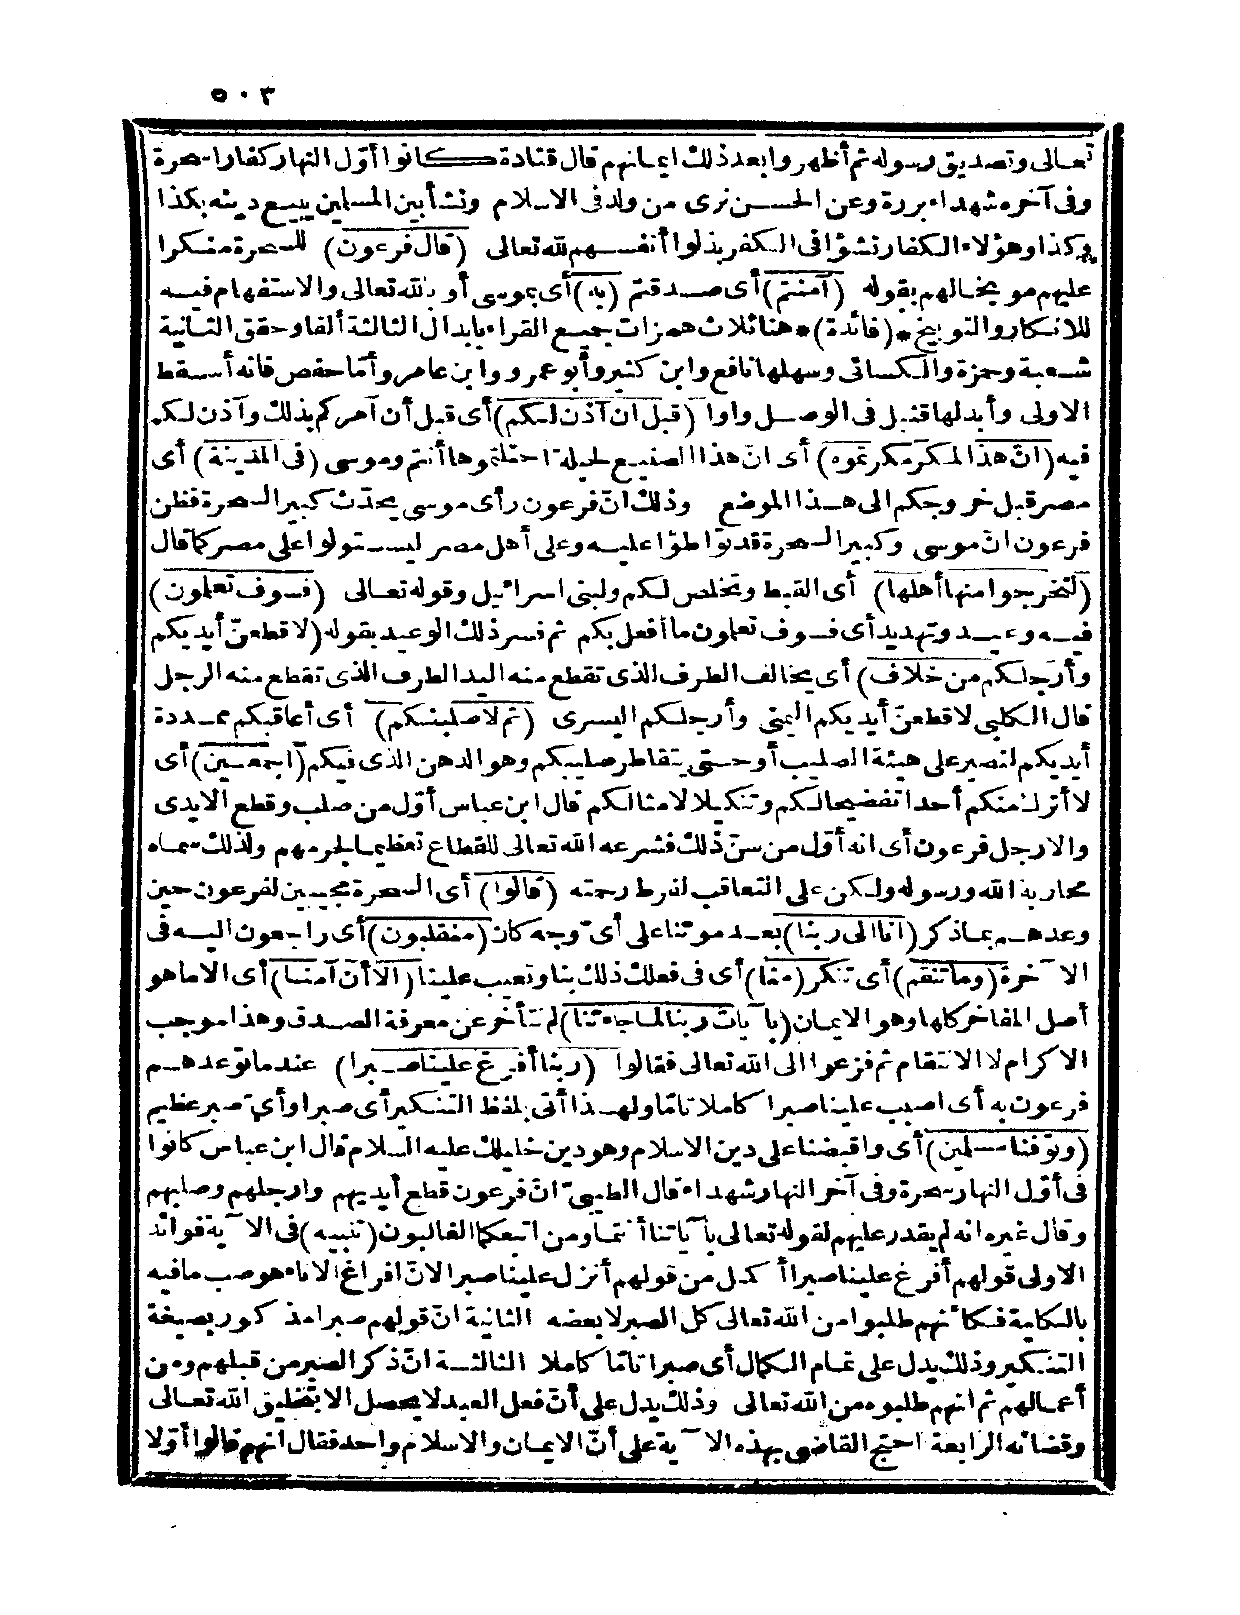 ٥٠٣
تعالى وتصديق رسوله ثم أظهروا بعد ذلك ايمانهم قال قتادة كانوا أوّل النهار كفارا سحرة
وفى آخره شهداء بررة وعن الحسن نرى من ولد فى الاسلام ونشأ بين المسلمين يبيع دينه بكذا
وكذا وهؤلاء الكفار نشؤا فى الكفر بذلوا أنفسهم لله تعالى (قال فرعون) للسحرة منكرا
عليهم موبخا لهم بقوله (آمنتم) أى صدقتم (به) أى بموسى أو بالله تعالى والاستفهام فيه
للانكار والتوبيخ *(فائدة)* هنا ثلاث همزات جميع القراء بابدال الثالثة ألفا وحقق الثانية
شعبة وحمزة والكسائى وسهلها نافع وابن كثير وأبو عمرو وابن عامر وأمّا حفص فانه أسقط
الاولى وأبدلها قنبل فى الوصل واوا (قبل ان آذن لكم) أى قبل أن آمركم بذلك وآذن لكم
فيه (انّ هذا لمكر مكرتموه) أى انّ هذا الصنيع لحيلة احتلتموها أنتم وموسى (فى المدينة) أى
مصر قبل خروجكم الى هذا الموضع وذلك انّ فرعون رأى موسى يحدّث كبير السحرة فظن
فرعون انّ موسى وكبير السحرة قد تواطؤا عليه وعلى أهل مصر ليستولوا على مصر كما قال
(لتخرجوا منها أهلها) أى القبط وتخلص لكم ولبنى اسرائيل وقوله تعالى (فسوف تعلمون)
فيه وعيد وتهديد أى فسوف تعلمون ما أفعل بكم ثم فسر ذلك الوعيد بقوله (لاقطعنّ أيديكم
وأرجلكم من خلاف) أى يخالف الطرف الذى تقطع منه اليد الطرف الذى تقطع منه الرجل
قال الكلبى لاقطعنّ أيديكم اليمنى وأرجلكم اليسرى (ثم لاصلبنكم) أى أعاقبكم ممدّدة
أيديكم لتصير على هيئة الصليب أو حتى يتقاطر صليبكم وهو الدهن الذى فيكم (أجمعين) أى
لا أترك منكم أحدا تفضيحا لكم وتنكيلا لامثالكم قال ابن عباس أوّل من صلب وقطع الايدى
والارجل فرعون أى انه أوّل من سنّ ذلك فشرعه الله تعالى للقطاع تعظيما لجرمهم ولذلك سماه
محاربة الله ورسوله ولكن على التعاقب لفرط رحمته (قالوا) أى السحرة مجيبين لفرعون حين
وعدهم بما ذكر (انا الى ربنا) بعد موتنا على أىّ وجه كان (منقلبون) أى راجعون اليه فى
الآخرة (وما تنقم) أى تنكر (منا) أى فى فعلك ذلك بنا وتعيب علينا (الا أن آمنا) أى الا ما هو
أصل المفاخر كلها وهو الايمان (بآيات ربنا لما جاءتنا) لم نتأخر عن معرفة الصدق وهذا موجب
الاكرام لا الانتقام ثم فزعوا الى الله تعالى فقالوا (ربنا أفرغ علينا صبرا) عند ما توعدهم
فرعون به أى اصبب علينا صبرا كاملا تامّا ولهذا أتى بلفظ التنكير أى صبرا وأىّ صبر عظيم
(وتوفنا مسلمين) أى واقبضنا على دين الاسلام وهو دين خليلك عليه السلام قال ابن عباس كانوا
فى أوّل النهار سحرة وفى آخر النهار شهداء قال الطيبىّ انّ فرعون قطع أيديهم وارجلهم وصلبهم
وقال غيره انه لم يقدر عليهم لقوله تعالى بآياتنا أنتما ومن اتبعكما الغالبون (تنبيه) فى الآية فوائد
الاولى قولهم أفرغ علينا صبرا أكمل من قولهم أنزل علينا صبرا لانّ افراغ الاناء هو صب ما فيه
بالكلية فكأنهم طلبوا من الله تعالى كل الصبر لا بعضه الثانية انّ قولهم صبرا مذكور بصيغة
التنكير وذلك يدل على تمام الكمال أى صبرا تامّا كاملا الثالثة انّ ذكر الصبر من قبلهم ومن
أعمالهم ثم انهم طلبوه من الله تعالى وذلك يدل على أنّ فعل العبد لا يحصل الا بتخليق الله تعالى
وقضائه الرابعة احتج القاضى بهذه الآية على أنّ الايمان والاسلام واحد فقال انهم قالوا أوّلا